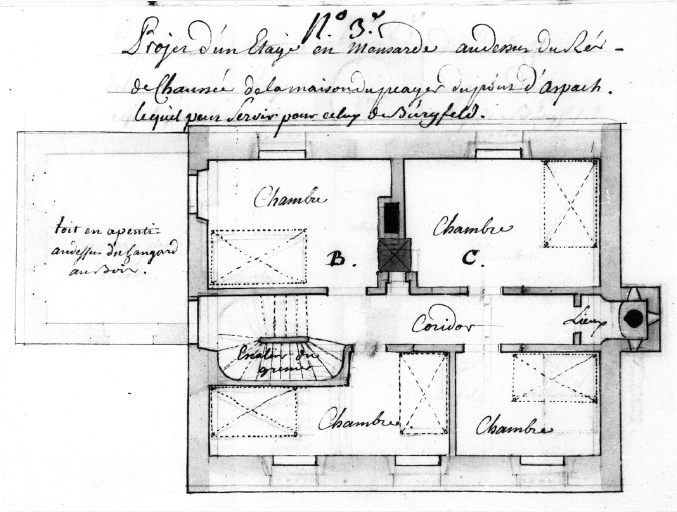 N.º 3.e
Projet d'un Etage en Mansarde au dessus du Réz-
de Chaussée de la maison du peager du pont d'aspach.
lequel peut servir pour celuy de Burgfeld.
Chambre
Chambre
toit en apenti
au dessus du hangard
au Bois.
B.
C.
Coridor
Lieux
Escalier du
grenier
Chambre
Chambre